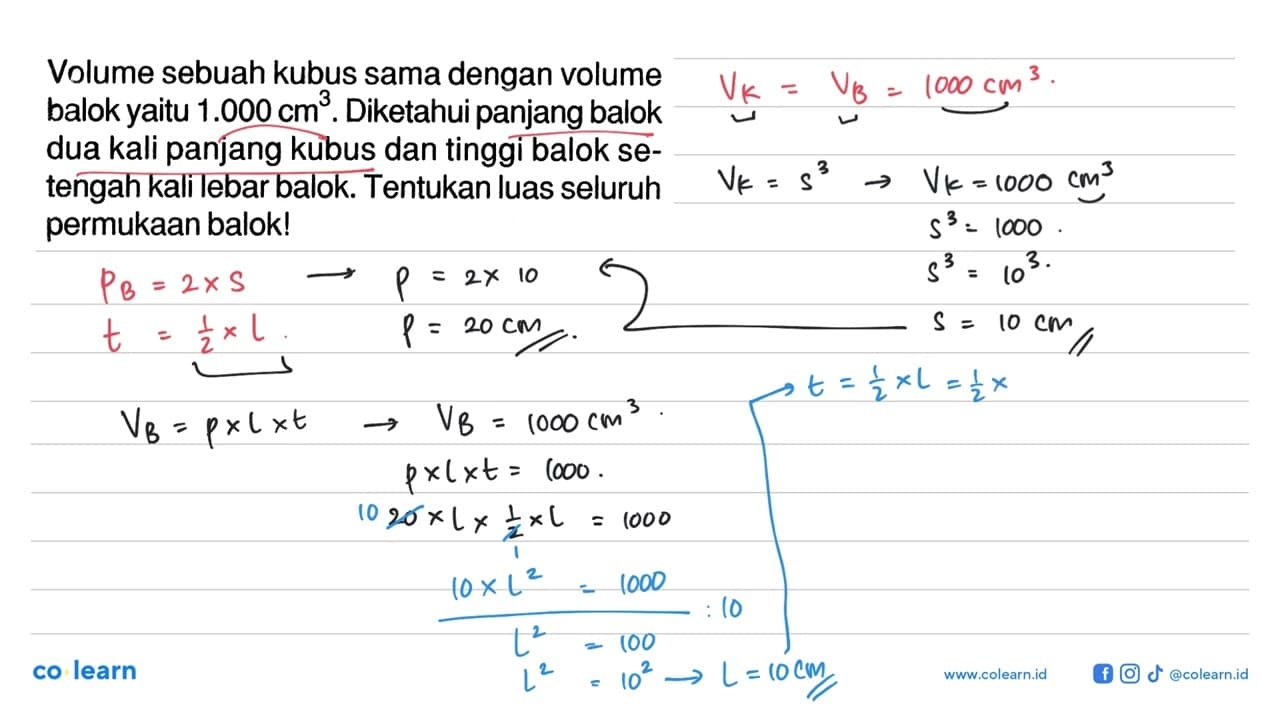 Volume sebuah kubus sama dengan volume
balok yaitu 1.000 cm³. Diketahui panjang balok
dua kali panjang kubus dan tinggi balok se-
tengah kali lebar balok. Tentukan luas seluruh
permukaan balok!
V_K = V_B = 1000 cm³.
V_K = s³ → V_K = 1000 cm³
s³ = 1000.
s³ = 10³.
s = 10 cm
P_B = 2 × s → p = 2 × 10
t = 1/2 × l. p = 20 cm.
V_B = p × l × t → V_B = 1000 cm³.
p × l × t = 1000.
10 20 × l × 1/2 × l = 1000
1
10 × l² = 1000
: 10
l² = 100
l² = 10² → l = 10 cm
t = 1/2 × l = 1/2 ×
co learn
www.colearn.id
@colearn.id